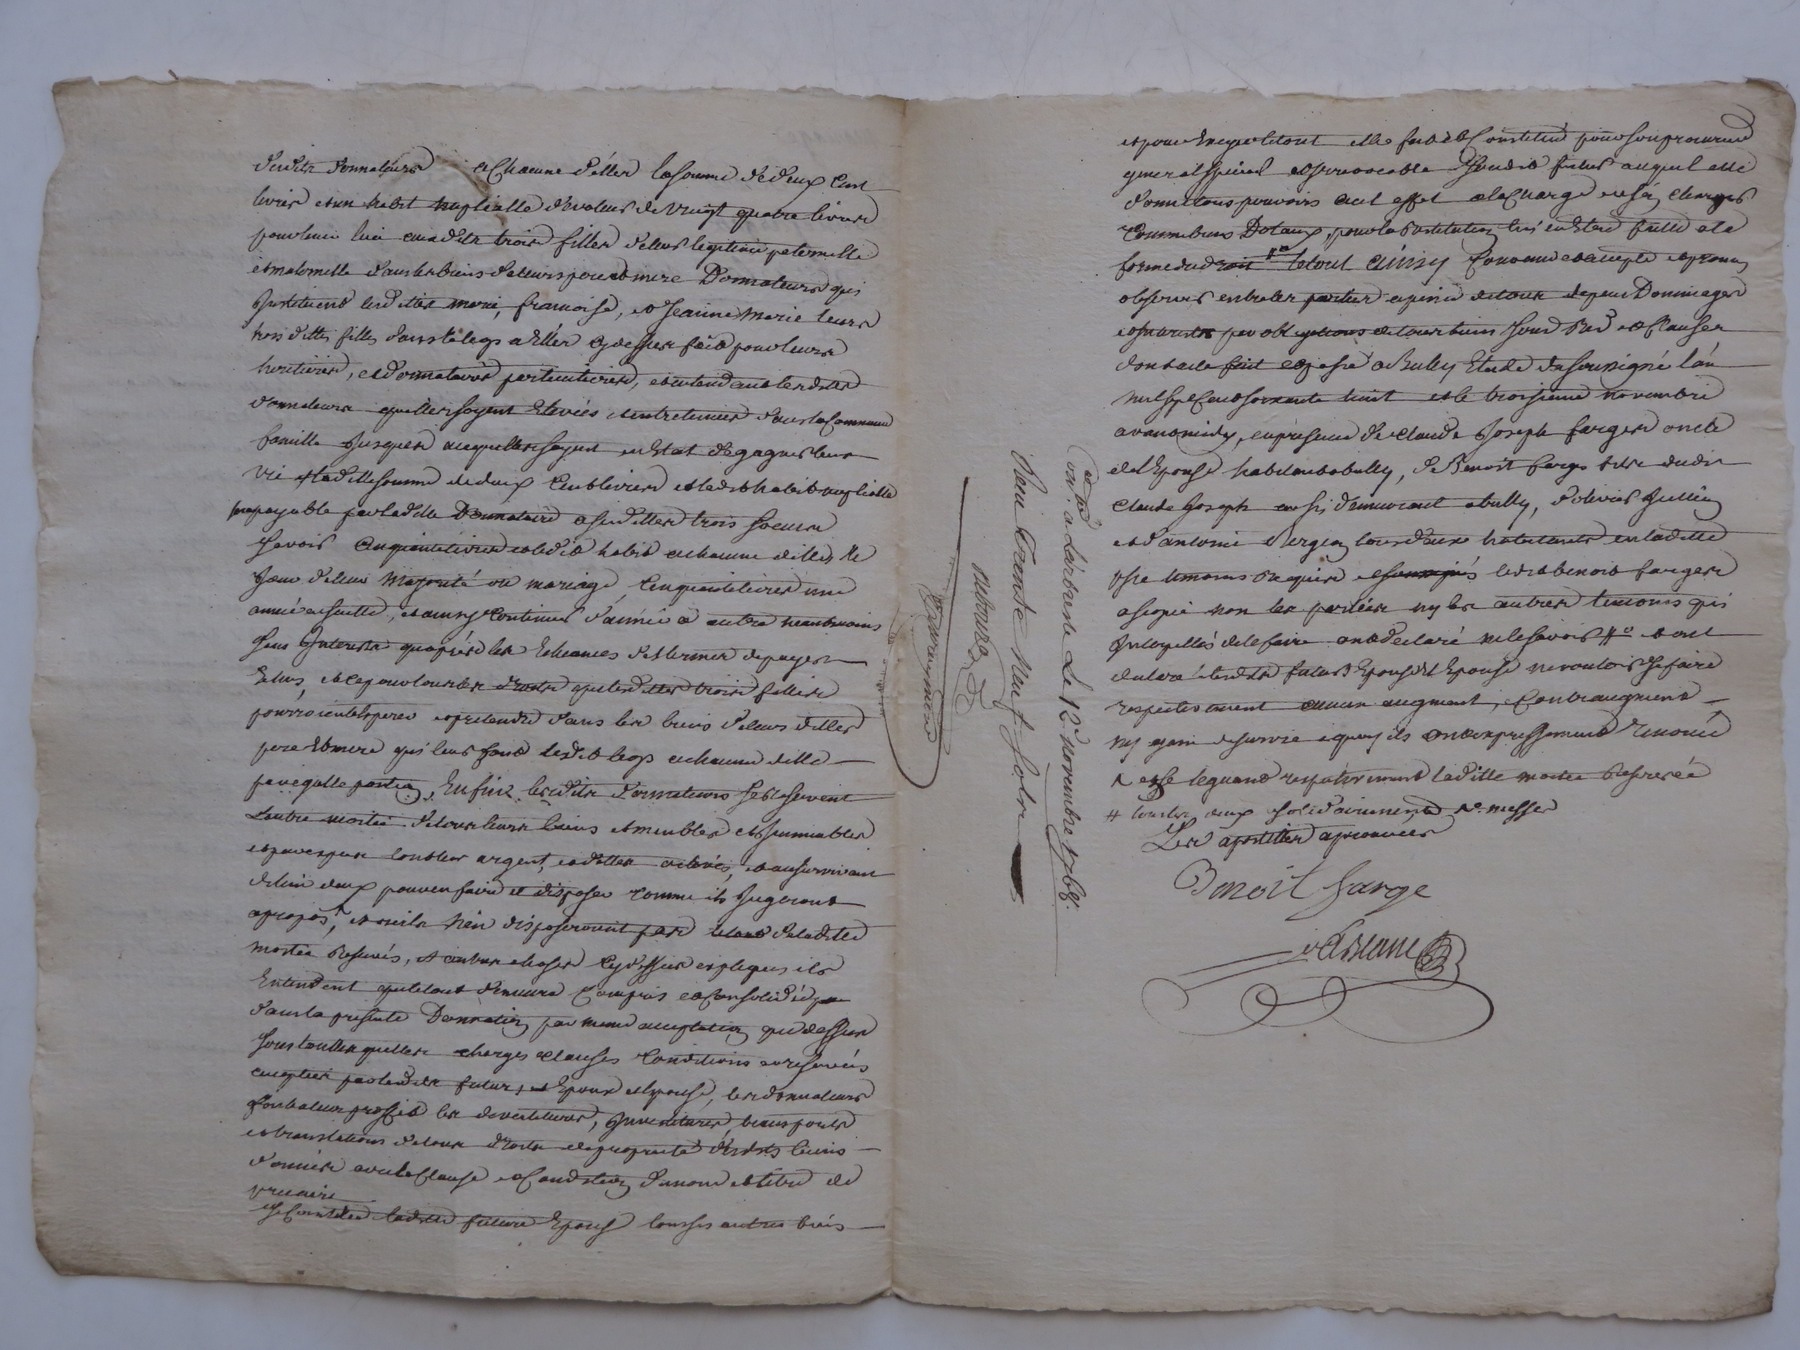 desdits donnateurs a Chacune d'elles la somme de deux Cent
livres et un habit nuptialle de valeur de vingt quatre livres
pour tenir lieu auxdites trois filles de leur legitime paternelle
et maternelle dans les biens de leurs pere et mere Donnateurs qui
Instituent lesdittes marie, francoise, et Jeanne Marie leurs
trois dittes filles dans le legs a Elles cy dessus fait pour leurs
heritieres, et donnataires particulieres, entendant lesdits
donnateurs quelles soyent Elevées et entretenues dans la Commune
famille Jusques acequelles soyent en Etat de gagner leur
vie et laditte somme de deux Cent livres et ledit habit nuptialle
payable par ladite Donnataire a sesdittes trois soeurs
scavoir Cinquante livres et ledit habit a chacune d'elles le
Jour de leur Majorité ou mariage, Cinquante livres une
année ensuitte, et ainsy Continuer d'année a autre neantmoins
sans Interests quaprés les Echeances des termes de payer
Eclus, et ce pour tous les droits que lesdittes trois filles
pourroient esperer et pretendre dans les biens de leurs dittes
pere et mere qui leur font ledit legs a chacune d'elle
par egalle portion, Enfin lesdits Donnateurs se reservent
L'autre moitié de tous leurs biens et meubles et Immeubles
argent, et dittes et au survivant
d'eux deux pouvoir faire et disposer comme ils Jugeront
apropos, et ou ils n'en disposeroient pas le tout de laditte
moitié Reservée, et autres choses Cydessus expliquées ils
Entendent que le tout demeure Compris et Consolidé
dans la presente Donnation par meme acceptation que dessus
sous toutes quelles charges clauses Conditions et reserves
acceptées par lesdits futurs Epoux et Epouse, les donnateurs
font a leur proffit les devestitures, Investitures, transports
et translations de tous droits de propriété desdits biens
donnés avec la Clause et Condition du nom et titre de
precaire
se Constitue laditte future Epouse tous ses autres biens
et pour Exiger le tout elle fait et Constitue pour son procureur
general special et Irrevocable sondit futur auquel elle
donne tous pouvoirs a cet effet a la Charge de ses Charges
Communes Dotaux, pour la Restitution lieu en Etant faitte a la
forme du droit le tout ainsy Convenu et accepté et promis
observer entre les parties a peine de tous depens Dommages
et Interets par obligations de tous biens sous Red. et Clauses
dont acte fait et passé a Bully Etude du soussigné l'an
mil sept Cent soixante huit et le troisieme novembre
avant midy, en presence de Claude Joseph farges oncle
de l'Epouse habitant a bully, de Benoit farge fils dudit
Claude Joseph aussi demeurant a bully, d'olivier Jullien
et d'antoine Bergeon tous deux habitants en laditte
psse temoins Requis et soussignés ledit benoit farges
a signé non les parties ny les autres temoins qui
Interpellés de le faire ont declaré ne le savoir # et ont
declaré lesdits futurs Epoux et Epouse ne vouloir se faire
respectivement aucun augment, Contraugment
ny gain de survie a quoy ils ont expressement renoncé
leguant respectivement laditte moitié Reservée
# tous les deux solidairement
Les apostilles aprouvées
Benoit farge
Con.lé a Larbresle Le 12.e novembre 1768.
Reçu trente neuf sols